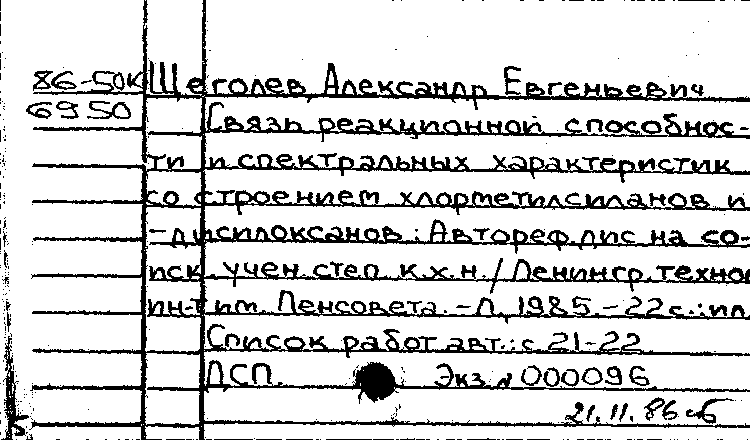 86-50к Щеголев, Александр Евгеньевич
6950 Связь реакционной способнос-
ти и спектральных характеристик
со строением хлорметилсиланов и
-дисилоксанов: Автореф. дис на со-
иск. учен. степ. к.х.н. / Ленингр. технол
ин-т им. Ленсовета. - Л, 1985. - 22 с.: ил
Список работ авт.: с 21-22
ДСП. Экз № 000096
21.11.86